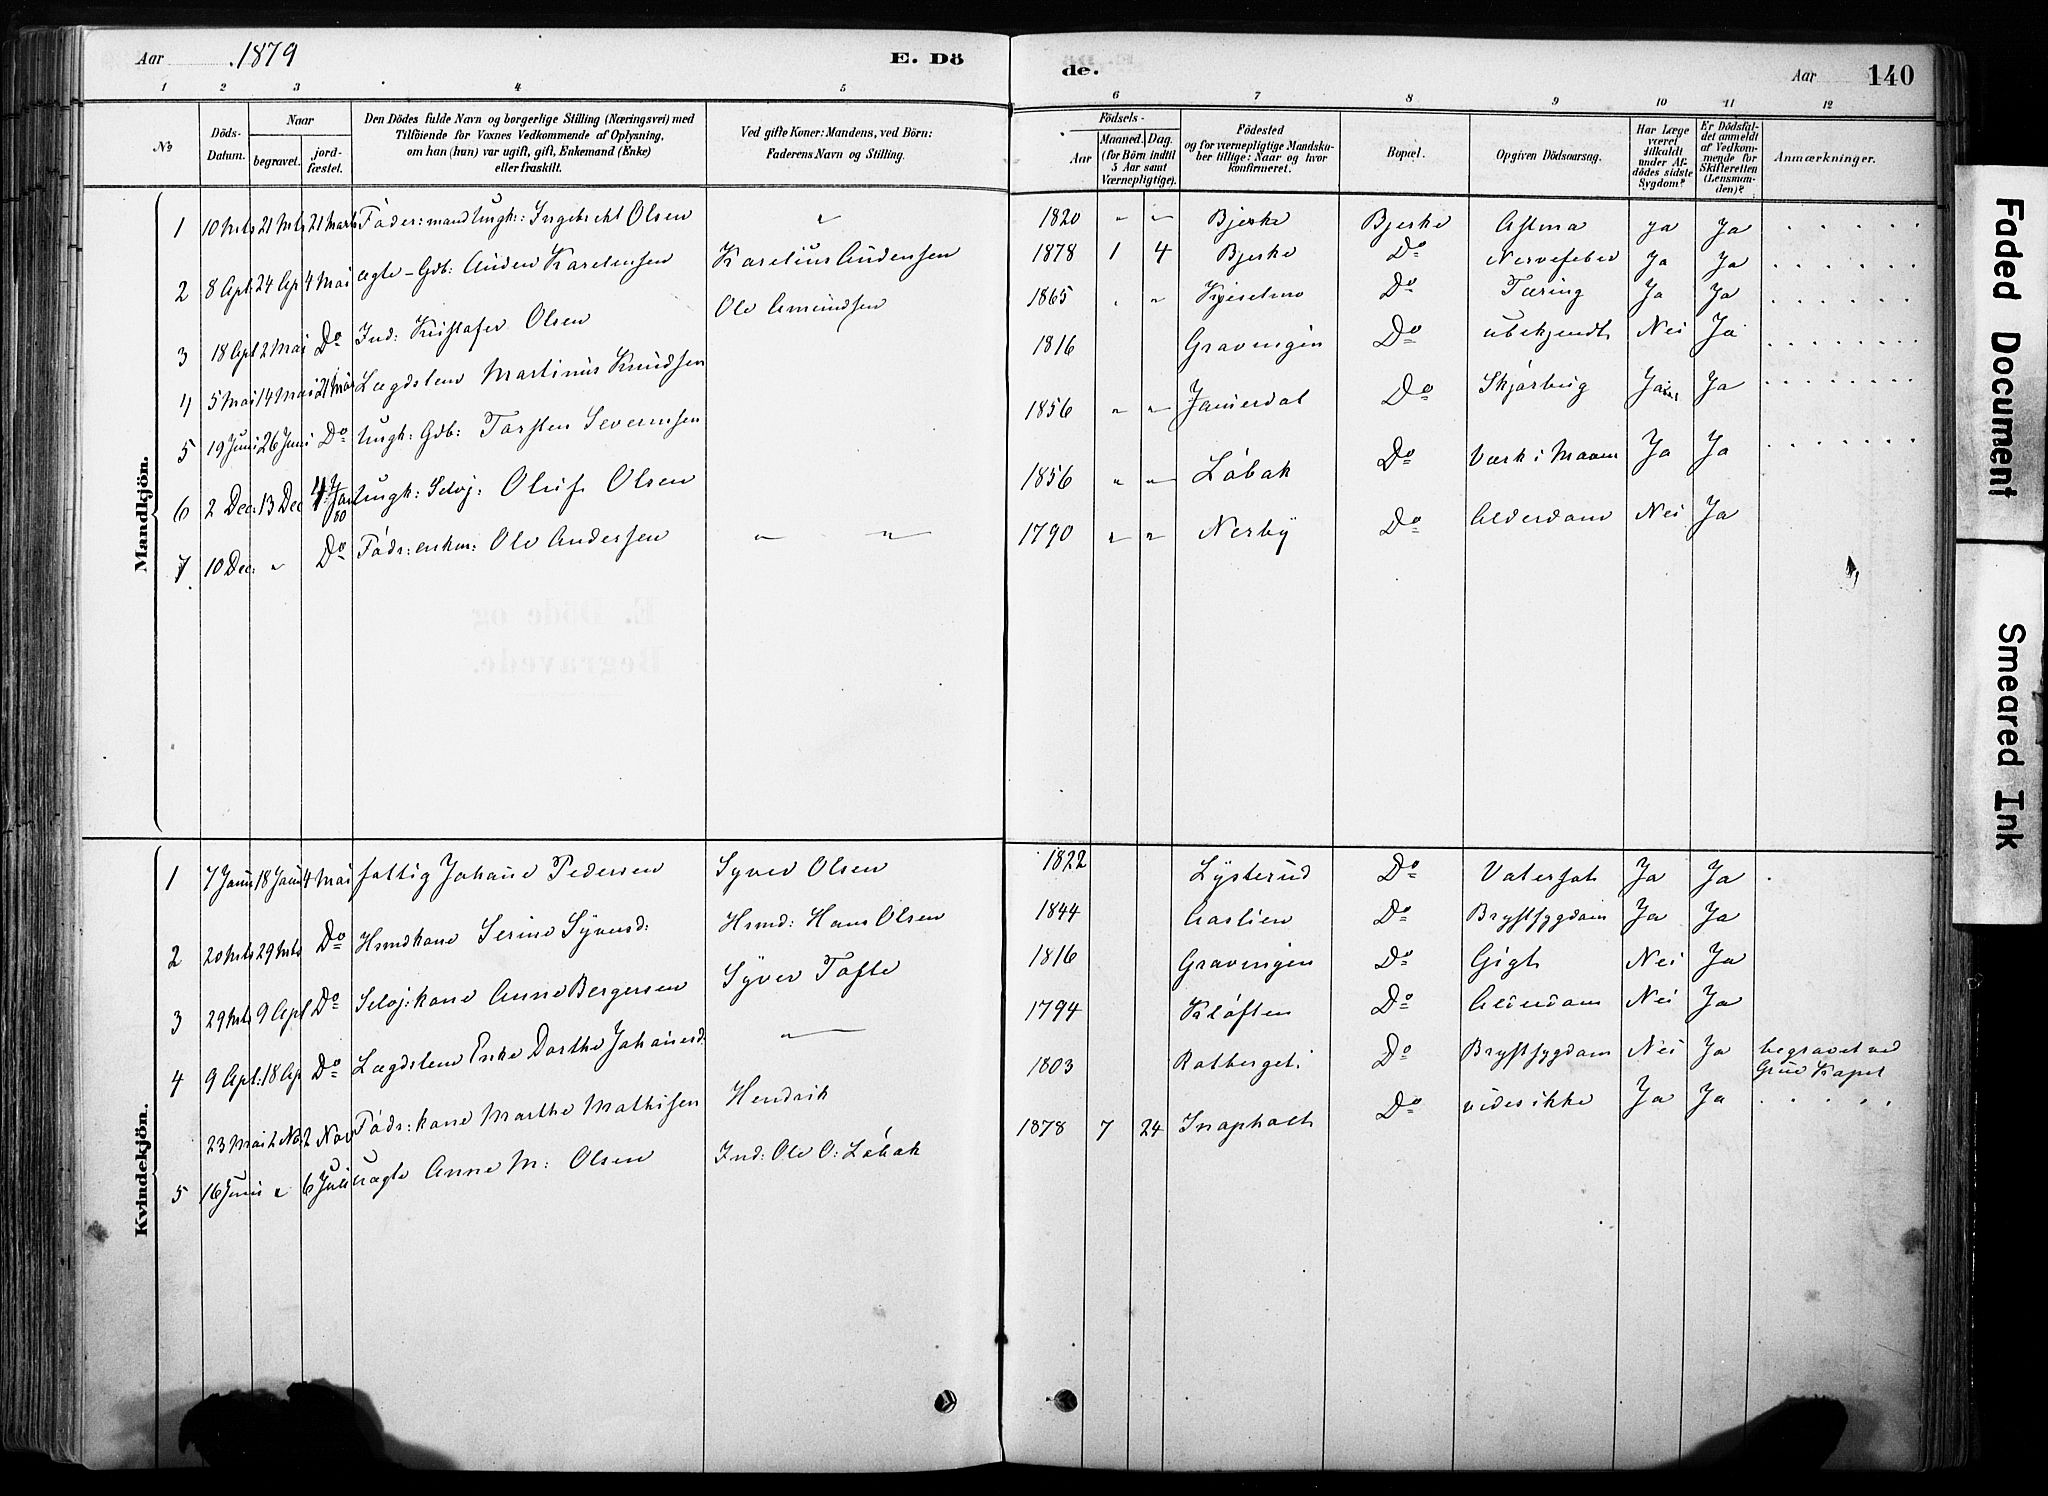 Aar 1879 E. Dö
de. Aar 140
1 2 3 4 5 6 7 8 9 10 11 12
No
Döds-
Datum.
Naar
begravet.
jord-
fæstet.
Den Dödes fulde Navn og borgerlige Stilling (Næringsvei) med
Tilföiende for Voxnes Vedkommende af Oplysning,
om han (hun) var ugift, gift, Enkemand (Enke)
eller fraskilt.
Ved gifte Koner: Mandens, ved Börn:
Faderens Navn og Stilling.
Födsels-
Aar
Maaned. Dag.
(for Börn indtil
5 Aar samt
Værnepligtige).
Födested
og for værnepligtige Mandska-
ber tillige: Naar og hvor
konfirmeret.
Bopæl.
Opgiven Dödsaarsag.
Har Læge
været
tilkaldt
under Af-
dödes sidste
Sygdom?
Er Dödsfal-
det anmeldt
af Vedkom-
mende for
Skifteretten
(Lensman-
den)?
Anmærkninger.
Mandkjön.
1 10 Mts 21 Mts 21 Marts Föder: mand Ungk: Ingebrecht Olsen " 1820 " " Bjerke Bjerke Astma ja Ja
2 8 Apl: 24 Ap 4 Mai ægte Gdb: Auden Karelensen Karelius Audensen 1878 1 4 Bjerke Do Nervefeber Ja Ja
3 18 Apl 2 Mai Do Ind: Kristofer Olsen Ole Amundsen 1865 " " Do Tæring Ja Ja
4 5 Mai 14 Mai 21 Mai Lægdslem Martinus Knudsen 1816 Gravningen Do ubekjendt Nei Ja
5 19 Juni 26 Juni Do Ungk: Gdb: Torsten Severinsen 1856 " " Do Ja
6 2 Dec: 13 Dec 4 Jan 80 Ungk: Selvj: Oluf Olsen 1856 " " Löbak Do Værk i Maven Ja Ja
7 10 Dec: " Do Födr: enkem: Ole Andersen " " 1790 " " Nerby Do Alderdom Nei Ja
E. Döde og
Begravede.
Kvindekjön.
1 7 Janu 18 Janu 4 Mai fattig Johane Pedersen Syver Olsen 1822 Lysterud Do Vatersot Ja Ja
2 20 Mts 29 Mts Do Hsmdkone Serine Syversd: Hsmd: Hans Olsen 1844 Aaslien Do Brystsygdom Ja Ja
3 29 Mts 9 Apl Do Selvj: kone Anne Bergersen Syver Tofte 1816 Gravningen Do Gigt Nei Ja
4 9 Apl: 18 Ap Do Lægdslem Enke Dorthe Johanesd: " 1794 Kloften Do Alderdom Nei Ja
23 Mai 2 No 2 Nov Födr: kone Marthe Mathisen Hendrik 1803 Rotberget Do Brystsygdom Nei Ja begravet ved
Grue Kapel
5 16 Juni " 6 Juli uægte Anne M: Olsen Ind: Ole O: Löbak 1878 7 24 Do vides ikke Ja Ja
Faded Document
Smeared Ink